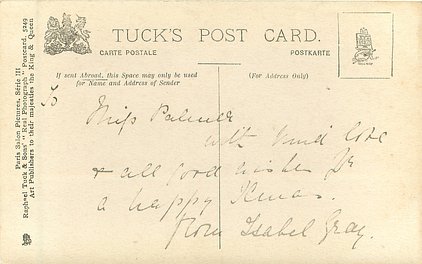 TUCK'S POST CARD.
CARTE POSTALE
POSTKARTE
If sent Abroad, this Space may only be used
for Name and Address of Sender
(For Address Only)
Paris Salon Pictures, Série III
Raphael Tuck & Sons' "Real Photograph" Postcard, 5249
Art Publishers to their majesties the King & Queen
To
Miss Palmer
with kind love
& all good wishes for
a happy Xmas.
from Isabel Gray.